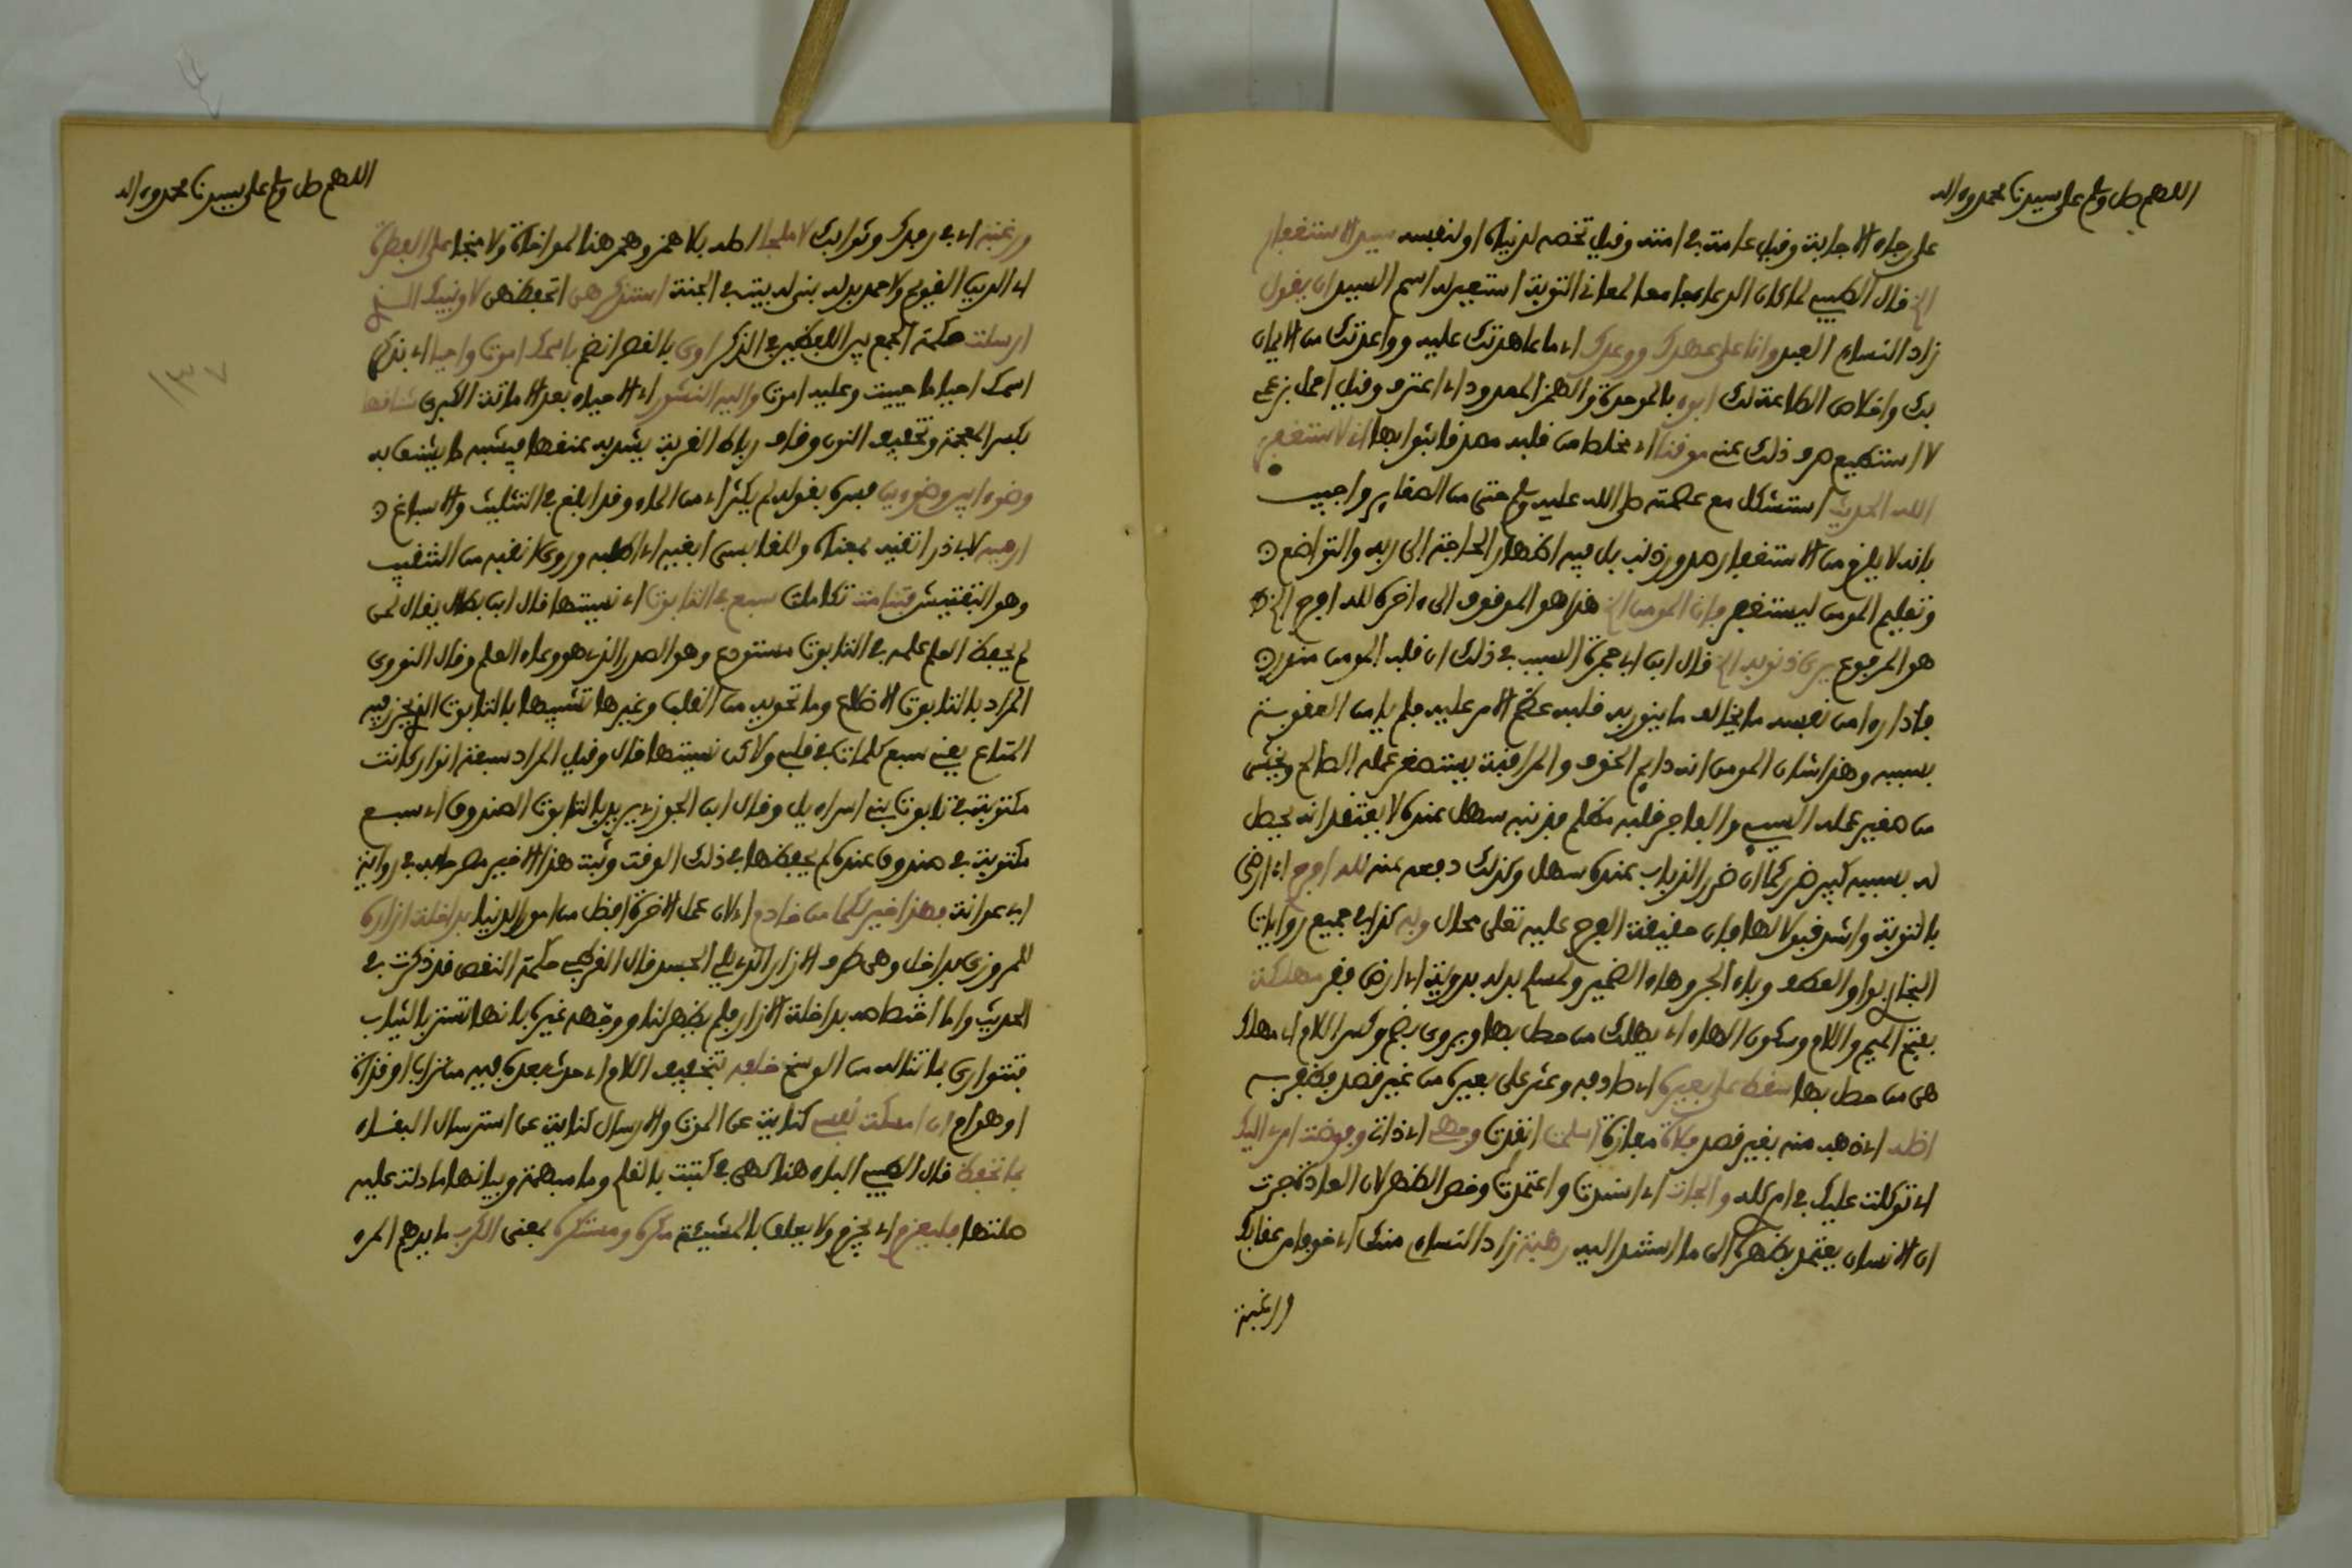 اللهم صل وسلم على سيدنا محمد وءاله
على رجاء الاجابة وقيل عامة في امته وقيل تخصه لدنياه او لنفسه سيد الاستغفار
الخ قال الطيبي لما كان الدعاء جامعا لمعاني التوبة استعير له اسم السيد ان يقول
زاد النساءي العبد وانا على عهدك ووعدك اي ما عاهدتك عليه وواعدتك من الايمان
بك واخلاص الطاعة لك ابوء بالموحدة والهمز الممدود اي اعترف وقيل احمل برغمي
لا استطيع صرف ذلك عني موقنا اي مخلصا من قلبه مصدقا بثوابها اني لاستغفر
الله الحديث استشكل مع عصمته صلى الله عليه وسلم حتى من الصغاير واجيب
بانه لا يلزم من الاستغفار صدور ذنب بل فيه اظهار الحاجة الى ربه والتواضع
وتعليم المومن ليستغفر فان المومن الخ هذا هو الموقوف الى ءاخره لله افرح الخ
هو المرفوع يرى ذنوبه الخ قال ابن ابي جمرة السبب في ذلك ان قلب المومن منور
فاذا رءا من نفسه ما يخالف ما ينور به قلبه عظم الامر عليه فلم يامن العقوبة
بسببه وهذا شان المومن انه دايم الخوف والمراقبة يستصغر عمله الصالح ويخشى
من صغير عمله السيئ والفاجر قلبه مظلم فذنبه سهل عنده لا يعتقد انه يحصل
له بسببه كبير ضرر كما ان ضرر الذباب عنده سهل وكذلك دفعه عنه لله افرح اي ارضى
بالتوبة واشد قبولا لها فان حقيقة الفرح عليه تعلى محال وبه كذا في جميع روايات
البخاري بواو العطف وباء الجر وهاء الضمير ولمسلم بدله بدوية اي ارض قفر مهلكة
بفتح الميم واللام وسكون الهاء اي يهلك من حصل بها ويروى بضم وكسر اللام اي مهلك
هي من حصل بها سقط على بعيره اي صادفه وعثر على بعيره من غير قصد فظفر به
اضله اي ذهب منه بغير قصد فلاة مفازة اسلمت انقدت وجهي اي ذاتي وفوضت امري اليك
اي توكلت عليك في امري كله والجات اي اسندت واعتمدت وخص الظهر لان العادة جرت
ان الانسان يعتمد بظهره الى ما استند اليه رهبة زاد النساءي منك اي خوفا من عقابك
ورغبة
اللهم صل وسلم على سيدنا محمد وءاله
ورغبة اي في رفدك وثوابك لا ملجا اصله بلا همز وهمز هنا لموازاة ولا منجا على الفطرة
اي الدين القويم ولاحمد بدله بني له بيت في الجنة استذكرهن اتحفظهن لا ونبيك الذي
ارسلت حكمة الجمع بين اللفظين في الذكر اوى بالقصر افصح باسمك اموت واحيا اي بذكر
اسمك احيا ما حييت وعليه اموت واليه النشور اي الاحياء بعد الاماتة الكبرى شناقها
بكسر المعجمة وتخفيف النون وقاف رباط القربة يشد به عنقها فيشبه ما يشنق به
وضوءا بين وضوءين فسره بقوله لم يكثر اي من الماء وقد ابلغ في التثليث والاسباغ
ارقبه لابي ذر اتقيه بمعناه وللقابسي ابغيه اي اطلبه وروي انقبه من التنقيب
وهو التفتيش فتتامت تكاملت سبع في التابوت اي نسيتها قال ابن بطال يقال لمن
لم يحفظ العلم علمه في التابوت مستودع وهو الصدر الذي هو وعاء العلم وقال النووي
المراد بالتابوت الاضلاع وما تحويه من القلب وغيره تشبيها بالتابوت الذي يحرز فيه
المتاع يعني سبع كلمات في قلبي ولاكن نسيتها قال وقيل المراد سبعة انوار كانت
مكتوبة في تابوت بني اسراءيل وقال ابن الجوزي يريد بالتابوت الصندوق اي سبع
مكتوبة في صندوق عنده لم يحفظها في ذلك الوقت وثبت هذا الاخير مصرحا به في رواية
ابي عوانة فهذا خير لكما من خادم اي لان عمل الاخرة افضل من امور الدنيا بداخلة ازاره
للمروزي بداخل وهي طرف الازار الذي يلي الجسد قال القرطبي حكمة النفض قد ذكرت في
الحديث واما اختصاصه بداخلة الازار فلم يظهر لنا ووجهه غيره بانها تستر بالثياب
فتتوارى بما تناله من الوسخ خلفه بتخفيف اللام اي حدث بعده فيه من تراب او قذاة
او هوام ان امسكت نفسي كناية عن الموت والارسال كناية عن استرسال البقاء
بما تحفظ قال الطيبي الباء هنا كهي في كتبت بالقلم وما مبهمة وبيانها ما دلت عليه
صلتها فليعزم اي يجزم ولا يعلق بالمشيئة مكره ومستكره بمعنى الكرب ما يدهم المرء
١٣٧